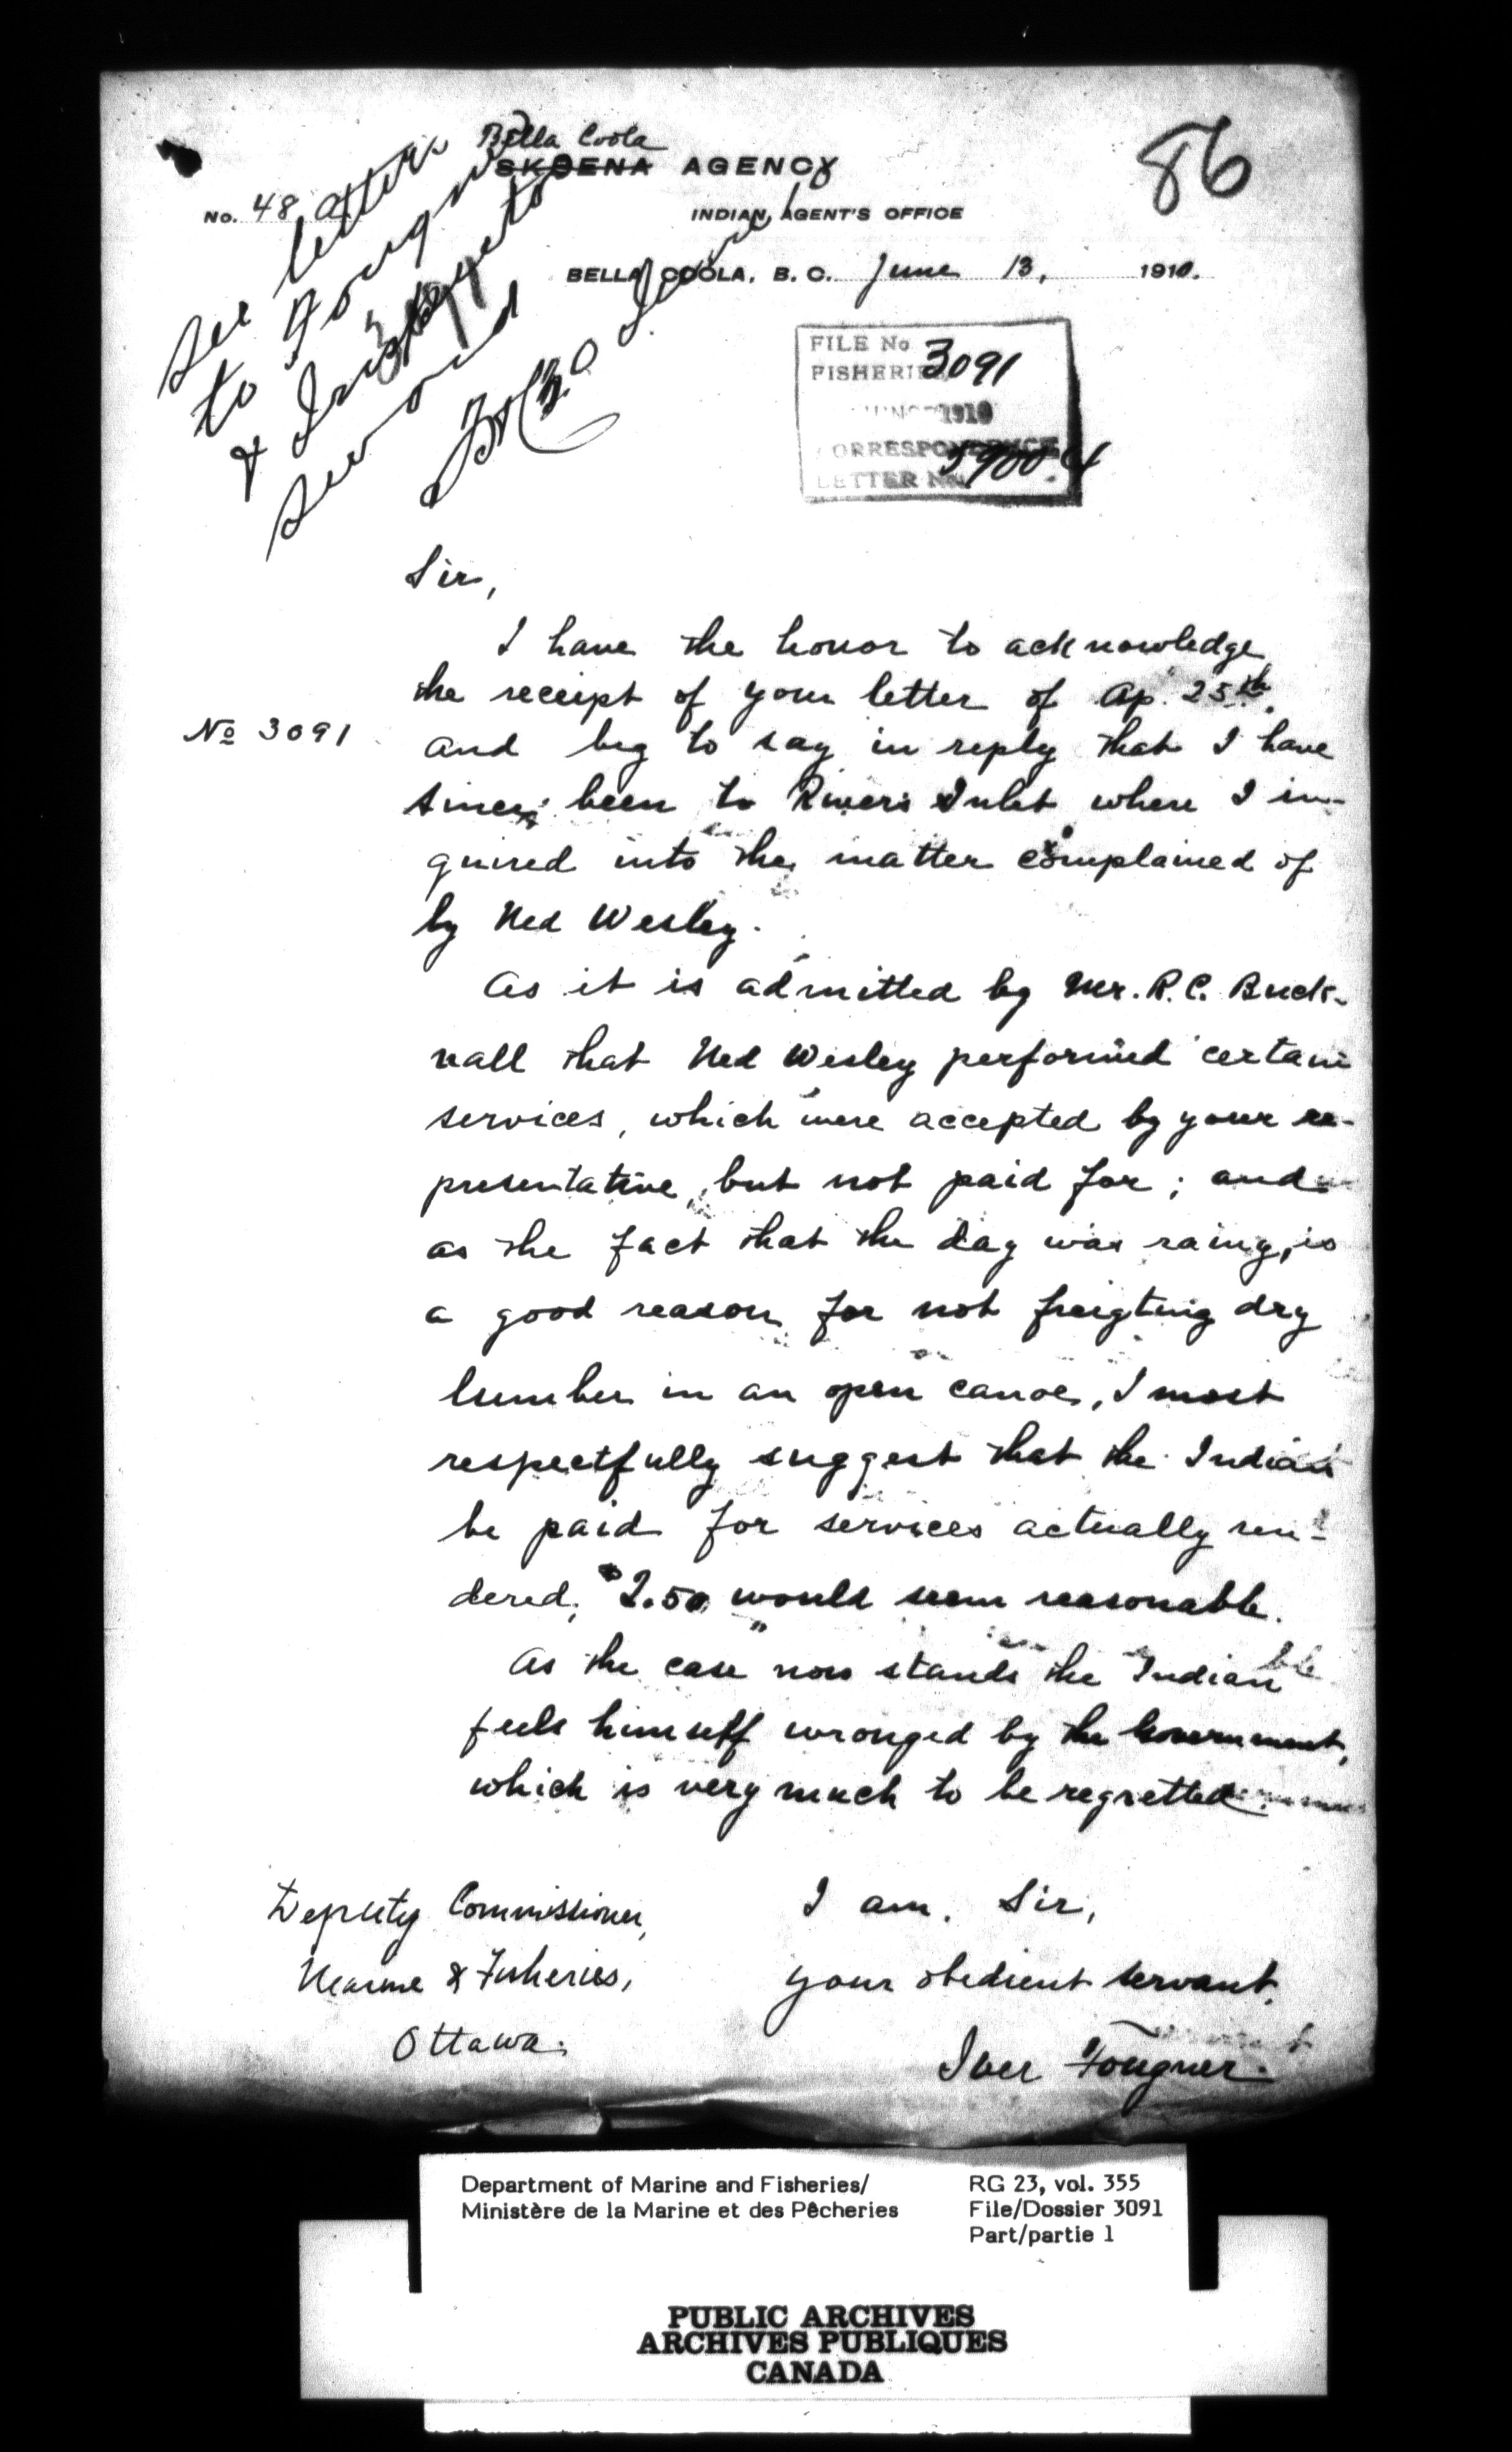 86
Bella Coola
SKEENA AGENCY
No. 48 a
INDIAN AGENT'S OFFICE
BELLA COOLA, B. C. June 13, 1910.
See letters
to Fougner
&
30 June
FILE No 3091
FISHERIES
1910
CORRESPONDENCE
LETTER No.
Sir,
I have the honor to acknowledge
the receipt of your letter of Ap. 25th.
No 3091
and beg to say in reply that I have
since been to Rivers Inlet where I in-
quired into the matter complained of
by Ned Wesley.
As it is admitted by Mr. R. C. Buck-
nall that Ned Wesley performed certain
services, which were accepted by your re-
presentative, but not paid for; and
as the fact that the day was rainy, is
a good reason for not freigting dry
lumber in an open canoe, I most
respectfully suggest that the Indian
be paid for services actually ren-
dered, $2.50 would seem reasonable.
As the case now stands the Indian
feels himself wronged by the Government,
which is very much to be regretted.
I am, Sir,
your obedient servant,
Iver Fougner.
Deputy Commissioner,
Marine & Fisheries,
Ottawa.
Department of Marine and Fisheries/
Ministère de la Marine et des Pêcheries
RG 23, vol. 355
File/Dossier 3091
Part/partie 1
PUBLIC ARCHIVES
ARCHIVES PUBLIQUES
CANADA